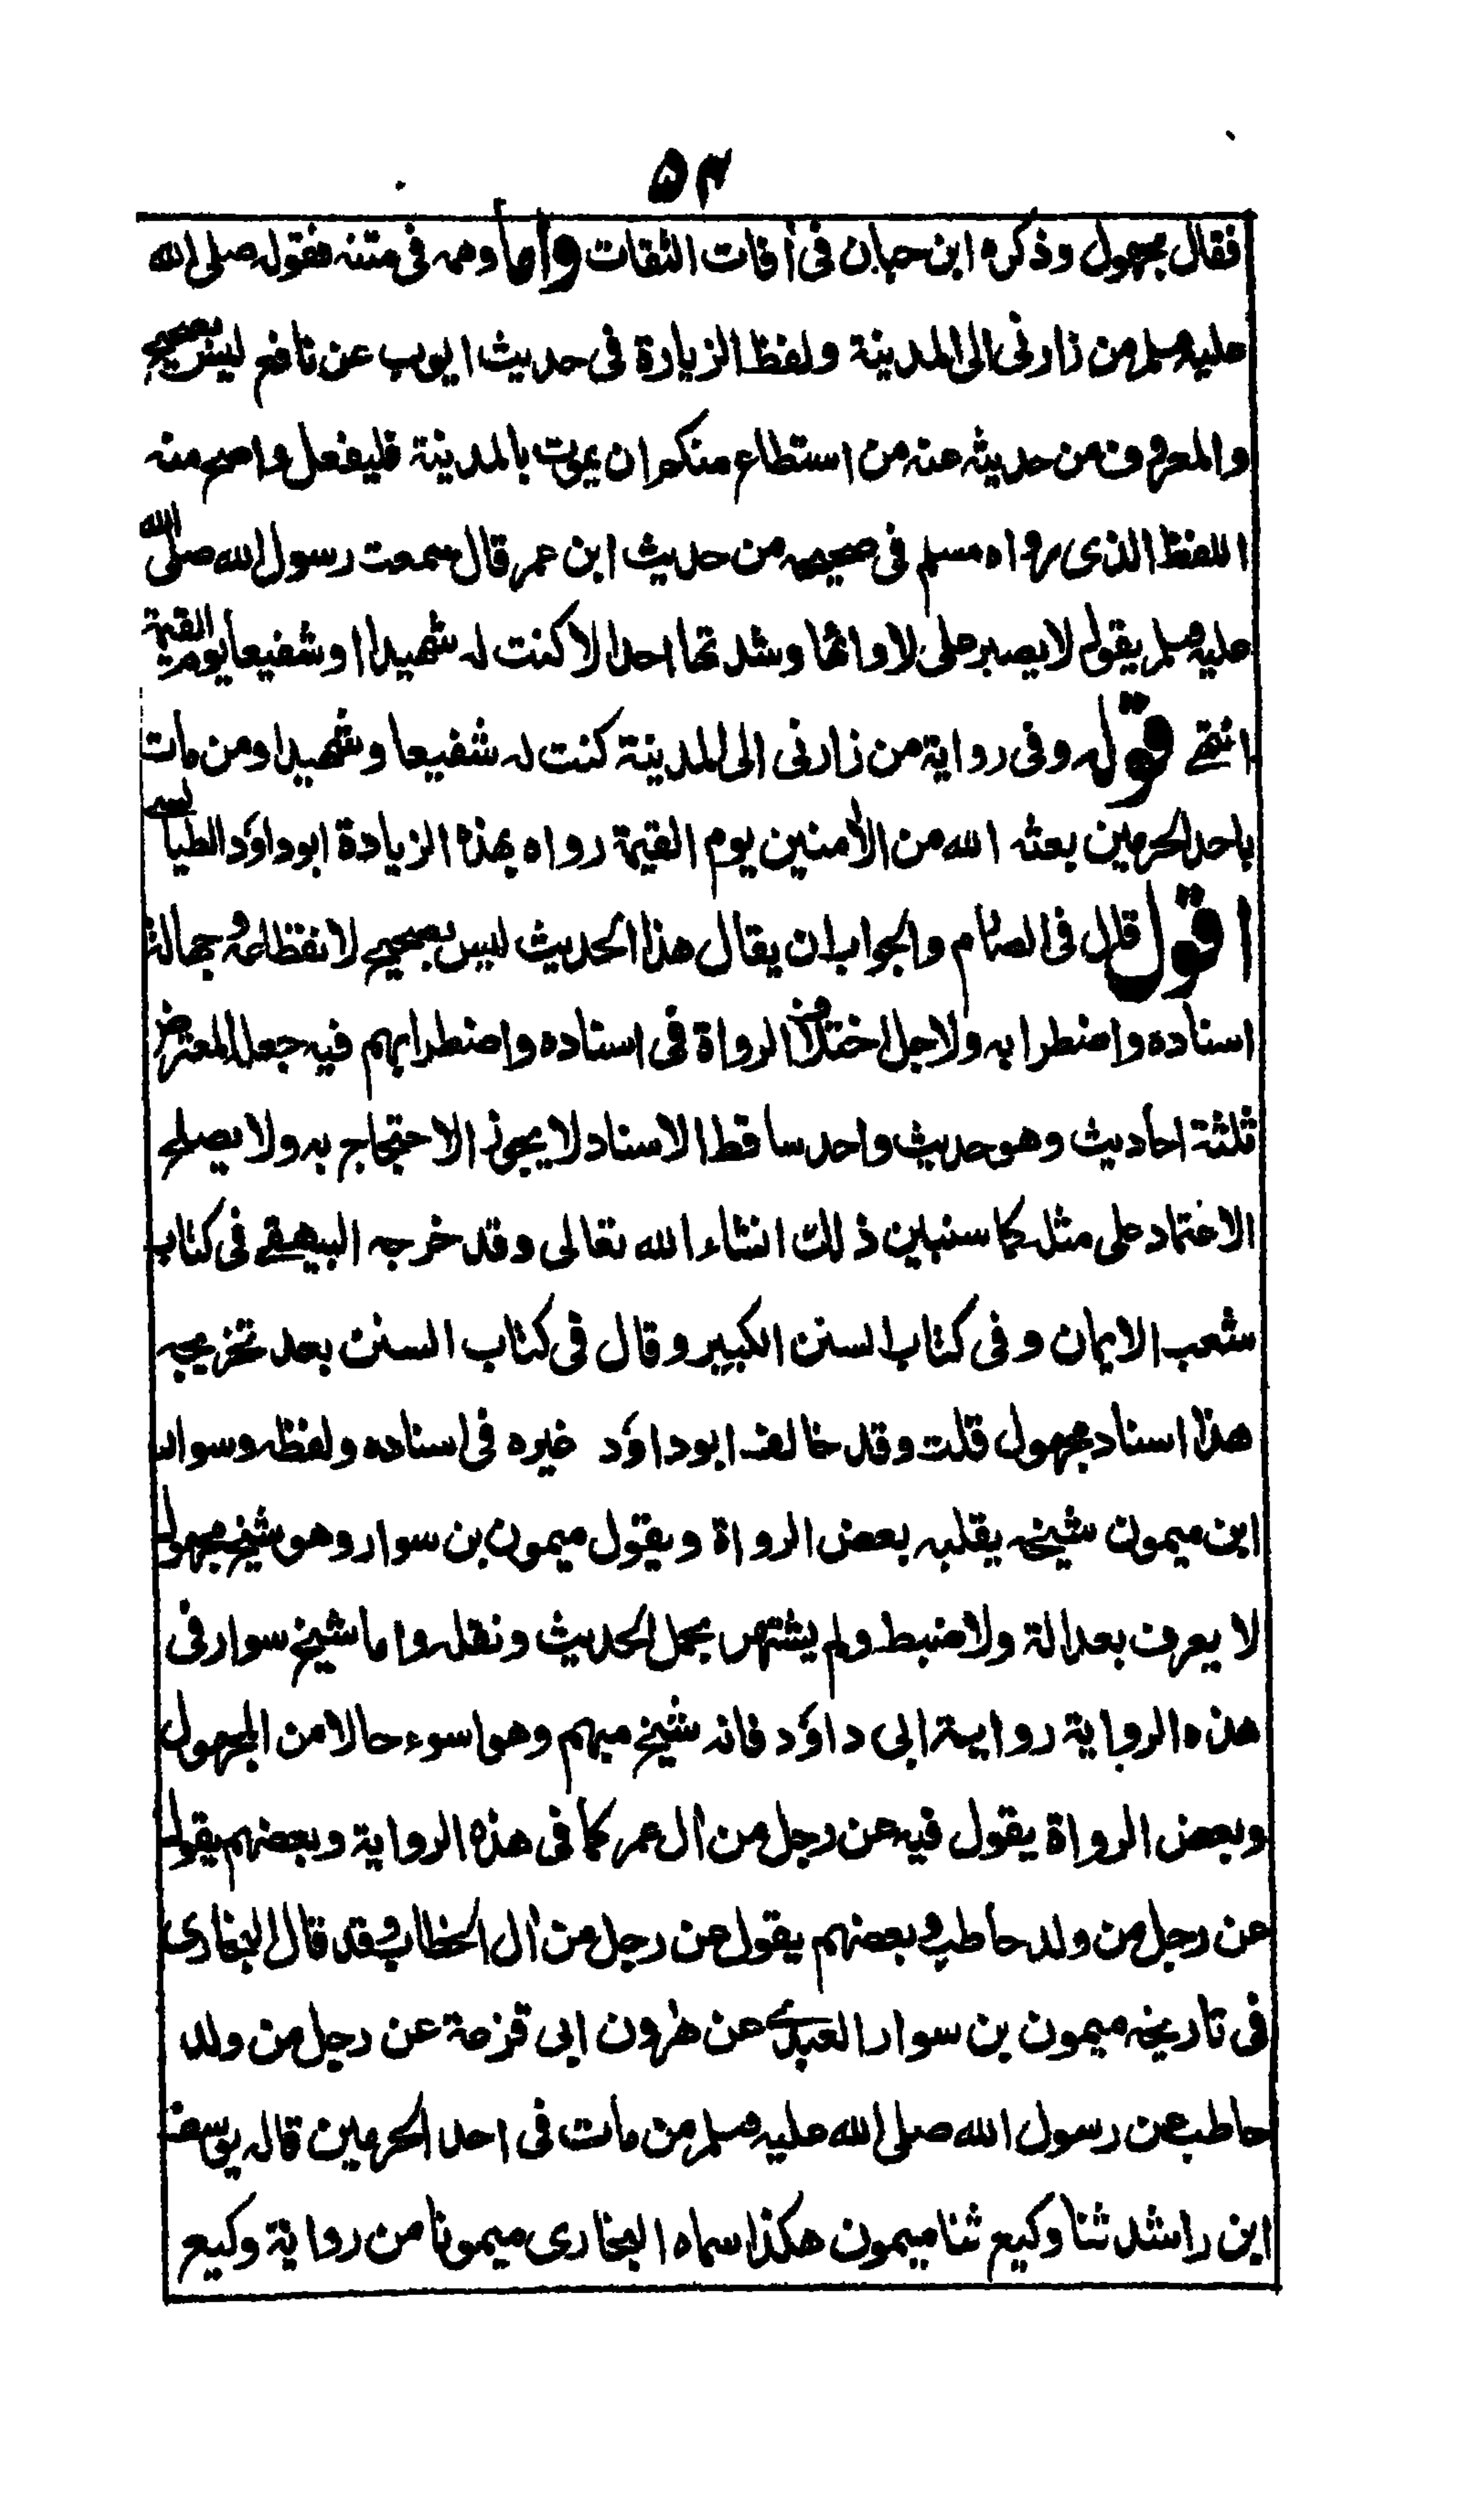 ۵۴
فقال مجهول وذكره ابن حبان فى أفات الثقات واما وهمه فى متنه فقوله صلى الله
عليه وسلم من زارنى الى المدينة ولفظ الزيارة فى حديث ايوب عن نافع ليس بصحيح
والمعروف من حديثه عنه من استطاع منكم ان يموت بالمدينة فليفعل واصح منه
اللفظ الذى رواه مسلم فى صحيحه من حديث ابن عمر قال سمعت رسول الله صلى الله
عليه وسلم يقول لا يصبر على لاوائها وشدتها احد الا كنت له شهيدا او شفيعا يوم القيمة
انتهى قوله وفى رواية من زارنى الى المدينة كنت له شفيعا وشهيدا ومن مات
باحد الحرمين بعثه الله من الأمنين يوم القيمة رواه بهذه الزيادة ابو داؤد الطيالسى
اقول قال فى الصارم والجواب ان يقال هذا الحديث ليس بصحيح لانقطاعه وجهالة
اسناده واضطرابه ولاجل اختلاف الرواة فى اسناده واضطرابهم فيه جعله المعترض
ثلثة احاديث وهو حديث واحد ساقط الاسناد لا يجوز الاحتجاج به ولا يصلح
الاعتماد على مثله كما سنبين ذلك انشاء الله تعالى وقد خرجه البيهقى فى كتاب
شعب الايمان وفى كتاب السنن الكبير وقال فى كتاب السنن بعد تخريجه
هذا اسناد مجهول قلت وقد خالف ابو داؤد غيره فى اسناده ولفظه وسوار
ابن ميمون شيخه يقلبه بعض الرواة ويقول ميمون بن سوار وهو شيخ مجهول
لا يعرف بعدالة ولا ضبط ولم يشتهر بحمل الحديث ونقله واما شيخ سوار فى
هذه الرواية رواية ابى داؤد فانه شيخ مبهم وهو اسوء حالا من المجهول
وبعض الرواة يقول فيه عن رجل من أل عمر كما فى هذه الرواية وبعضهم يقول
عن رجل من ولد حاطب وبعضهم يقول عن رجل من أل الخطاب وقد قال البخارى
فى تاريخه ميمون بن سوار العبدى عن هرون ابى قزعة عن رجل من ولد
حاطب عن رسول الله صلى الله عليه وسلم من مات فى احد الحرمين قاله يوسف
ابن راشد ثنا وكيع ثنا ميمون هكذا سماه البخارى ميمونا من رواية وكيع